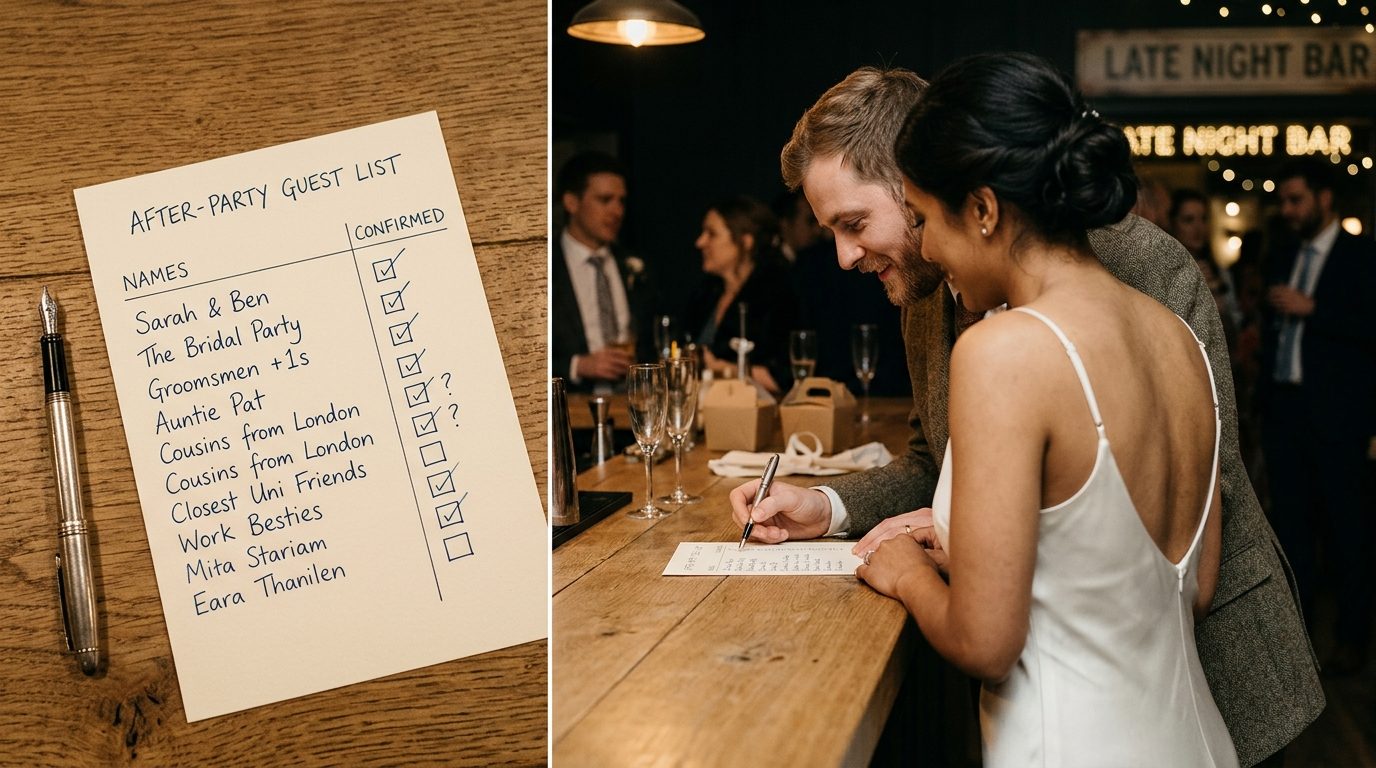 AFTER-PARTY GUEST LIST
NAMES CONFIRMED
Sarah & Ben
The Bridal Party
Groomsmen +1s
Auntie Pat
Cousins from London ?
Cousins from London ?
Closest Uni Friends
Work Besties
Mita Stariam
Eara Thanilen
LATE NIGHT BAR
ATE NIGHT BAR